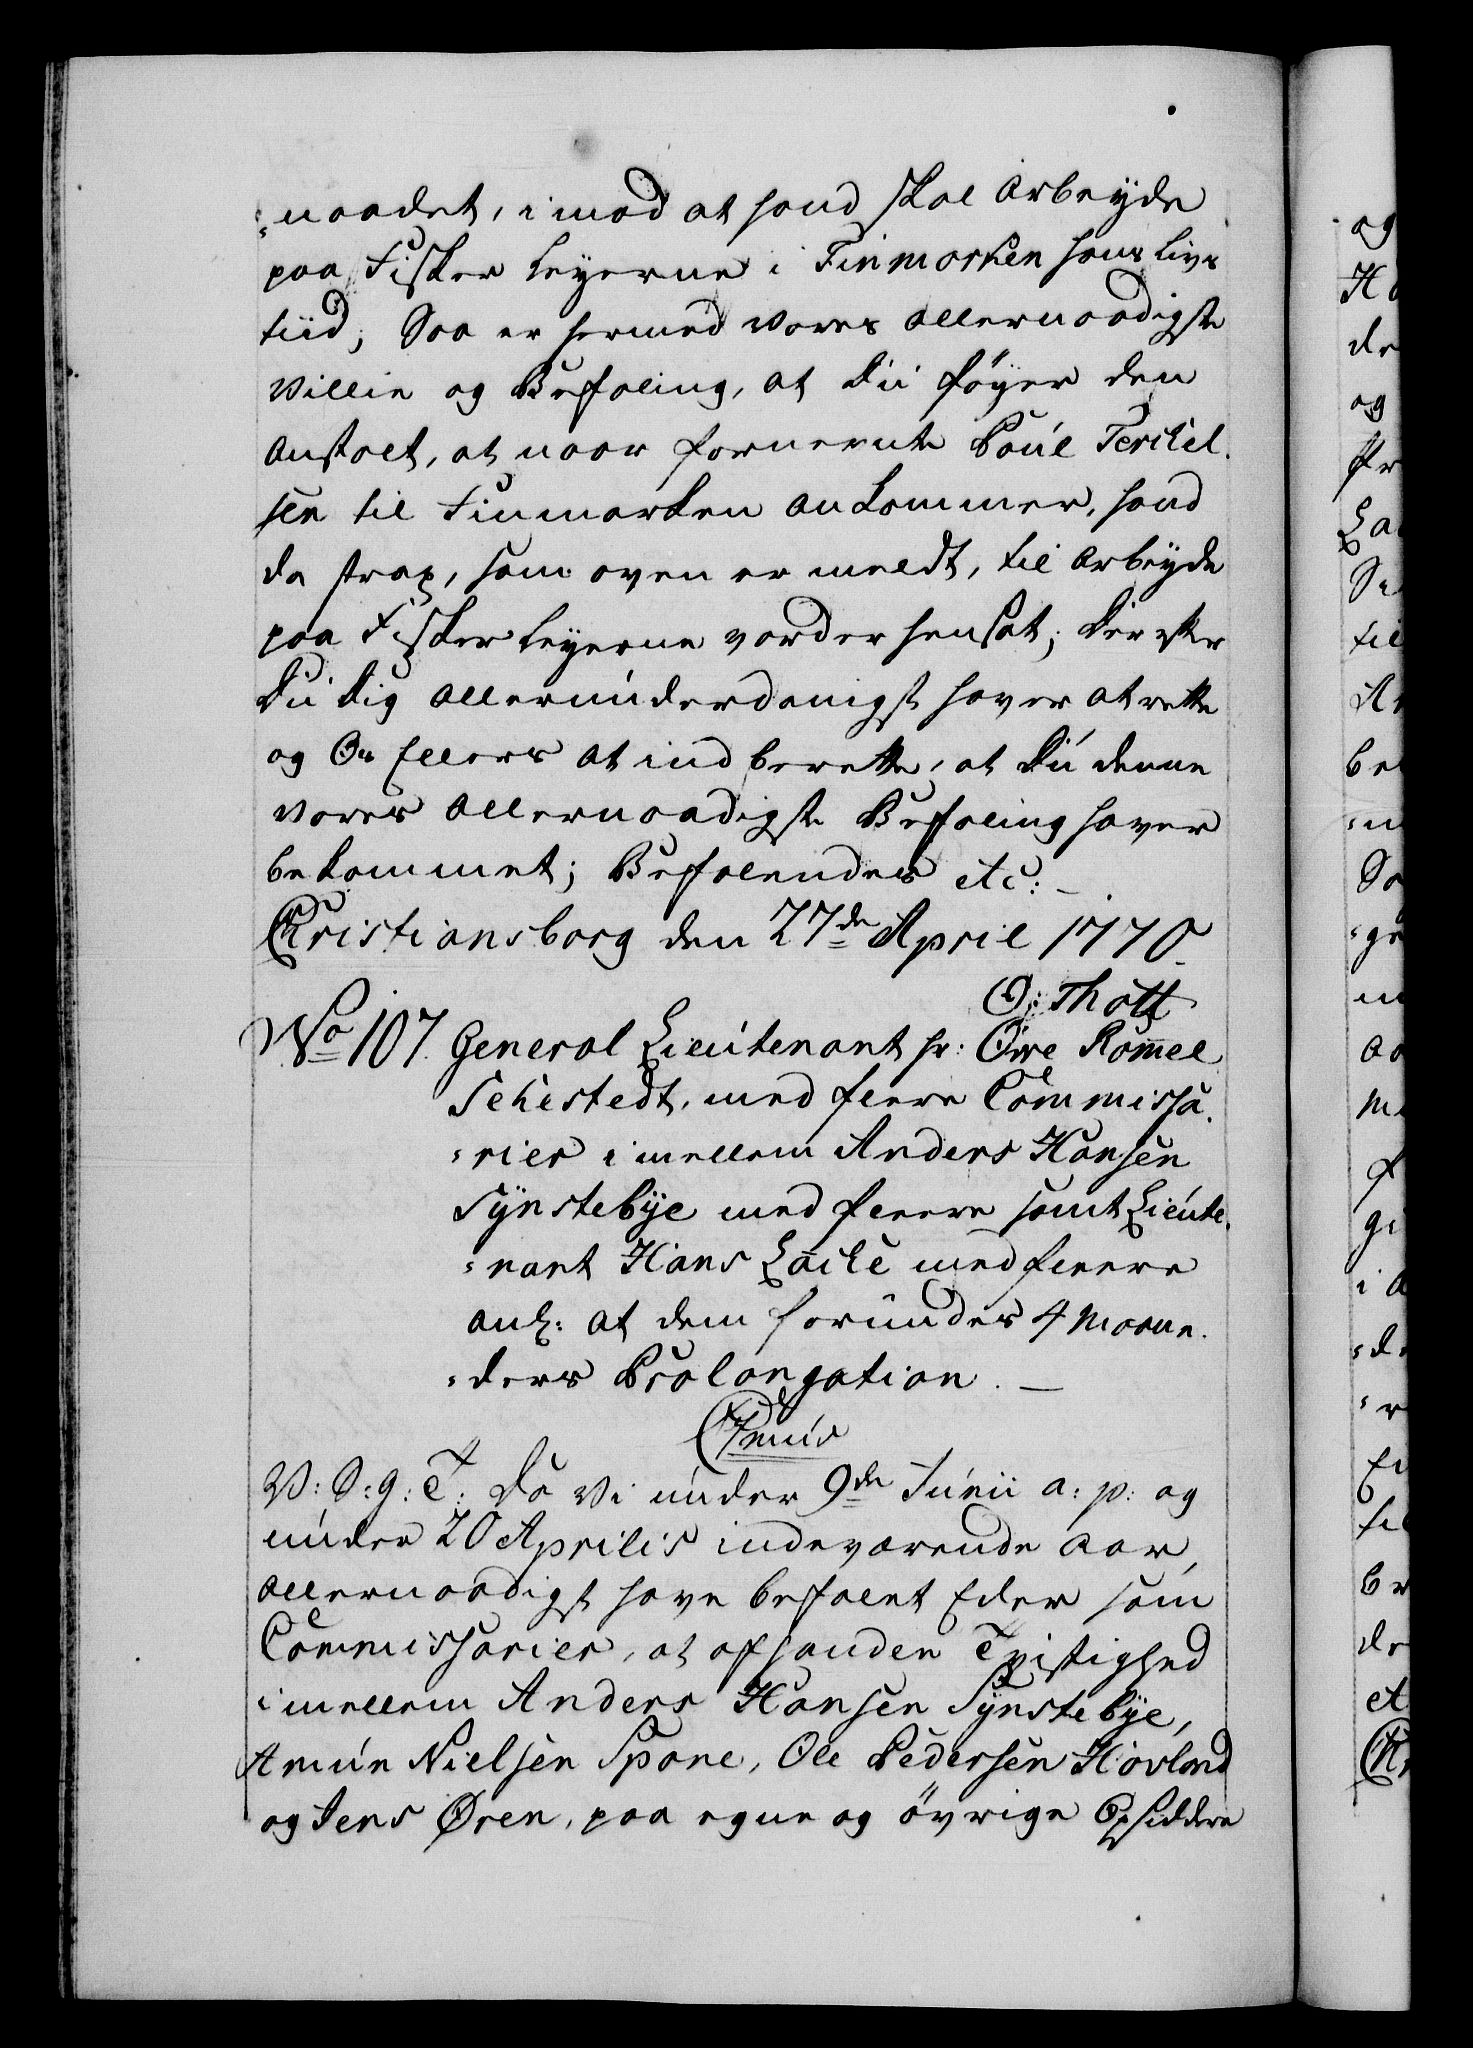 =naadet, imod at hand skal arbeyde
paa Fisker leyerne i Finmarken hans livs
tiid; Saa er hermed vores allernaadigste
villie og Befaling, at Du föyer den
anstalt, at naar fornevnte Poul Terckel.
sen til Finmarken ankommer, hand
da strax, som oven er meldt, til Arbeyde
paa Fisker leyerne vorder hensat; der efter
Du dig allerunderdanigst haver at rette
og Os Ellers at indberette, at Du denne
vores allernaadigste Befaling haver
bekommet; Befalendes etc: –
Christiansborg den 27de April 1770.
O: Thott
No 107. General Lieutenant hr: Owe Romel
Sehestedt, med fleere Commissa.
=rier imellem Anders Hansen
Synstebye med fleere samt Lieute.
=nant Hans Lacke med fleere
anl: at dem forundes 4 Maane.
=ders Prolongation. –
Chr: 7mus
V: S: g: T: Da Vi under 9de Junii a: p: og
under 20 Aprilis indeværende Aar,
allernaadigst have befalet Eder som
Commissarier, at afhandle Tvistighed
imellem Anders Hansen Synstebye,
Amun Nielsen Spone, Ole Pedersen Hovland
og Jens Øren, paa egne og övrige Opsiddere